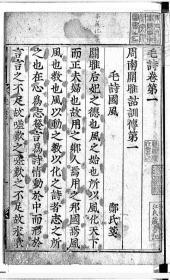 毛詩卷第一
周南關雎詁訓傳第一
毛詩國風
鄭氏箋
關雎后妃之德也風之始也所以風天下
而正夫婦也故用之鄉人焉用之邦國焉
風風也教也風以動之教以化之詩者志之所
之也在心為志發言為詩情動於中而形於
言言之不足故嗟歎之嗟歎之不足故永歌